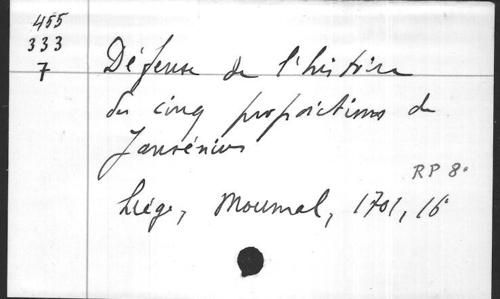 455
333
7
Défense de l'histoire
des cinq propositions de
Jansénius
RP 8°
Liége, Moumal, 1701, 16°